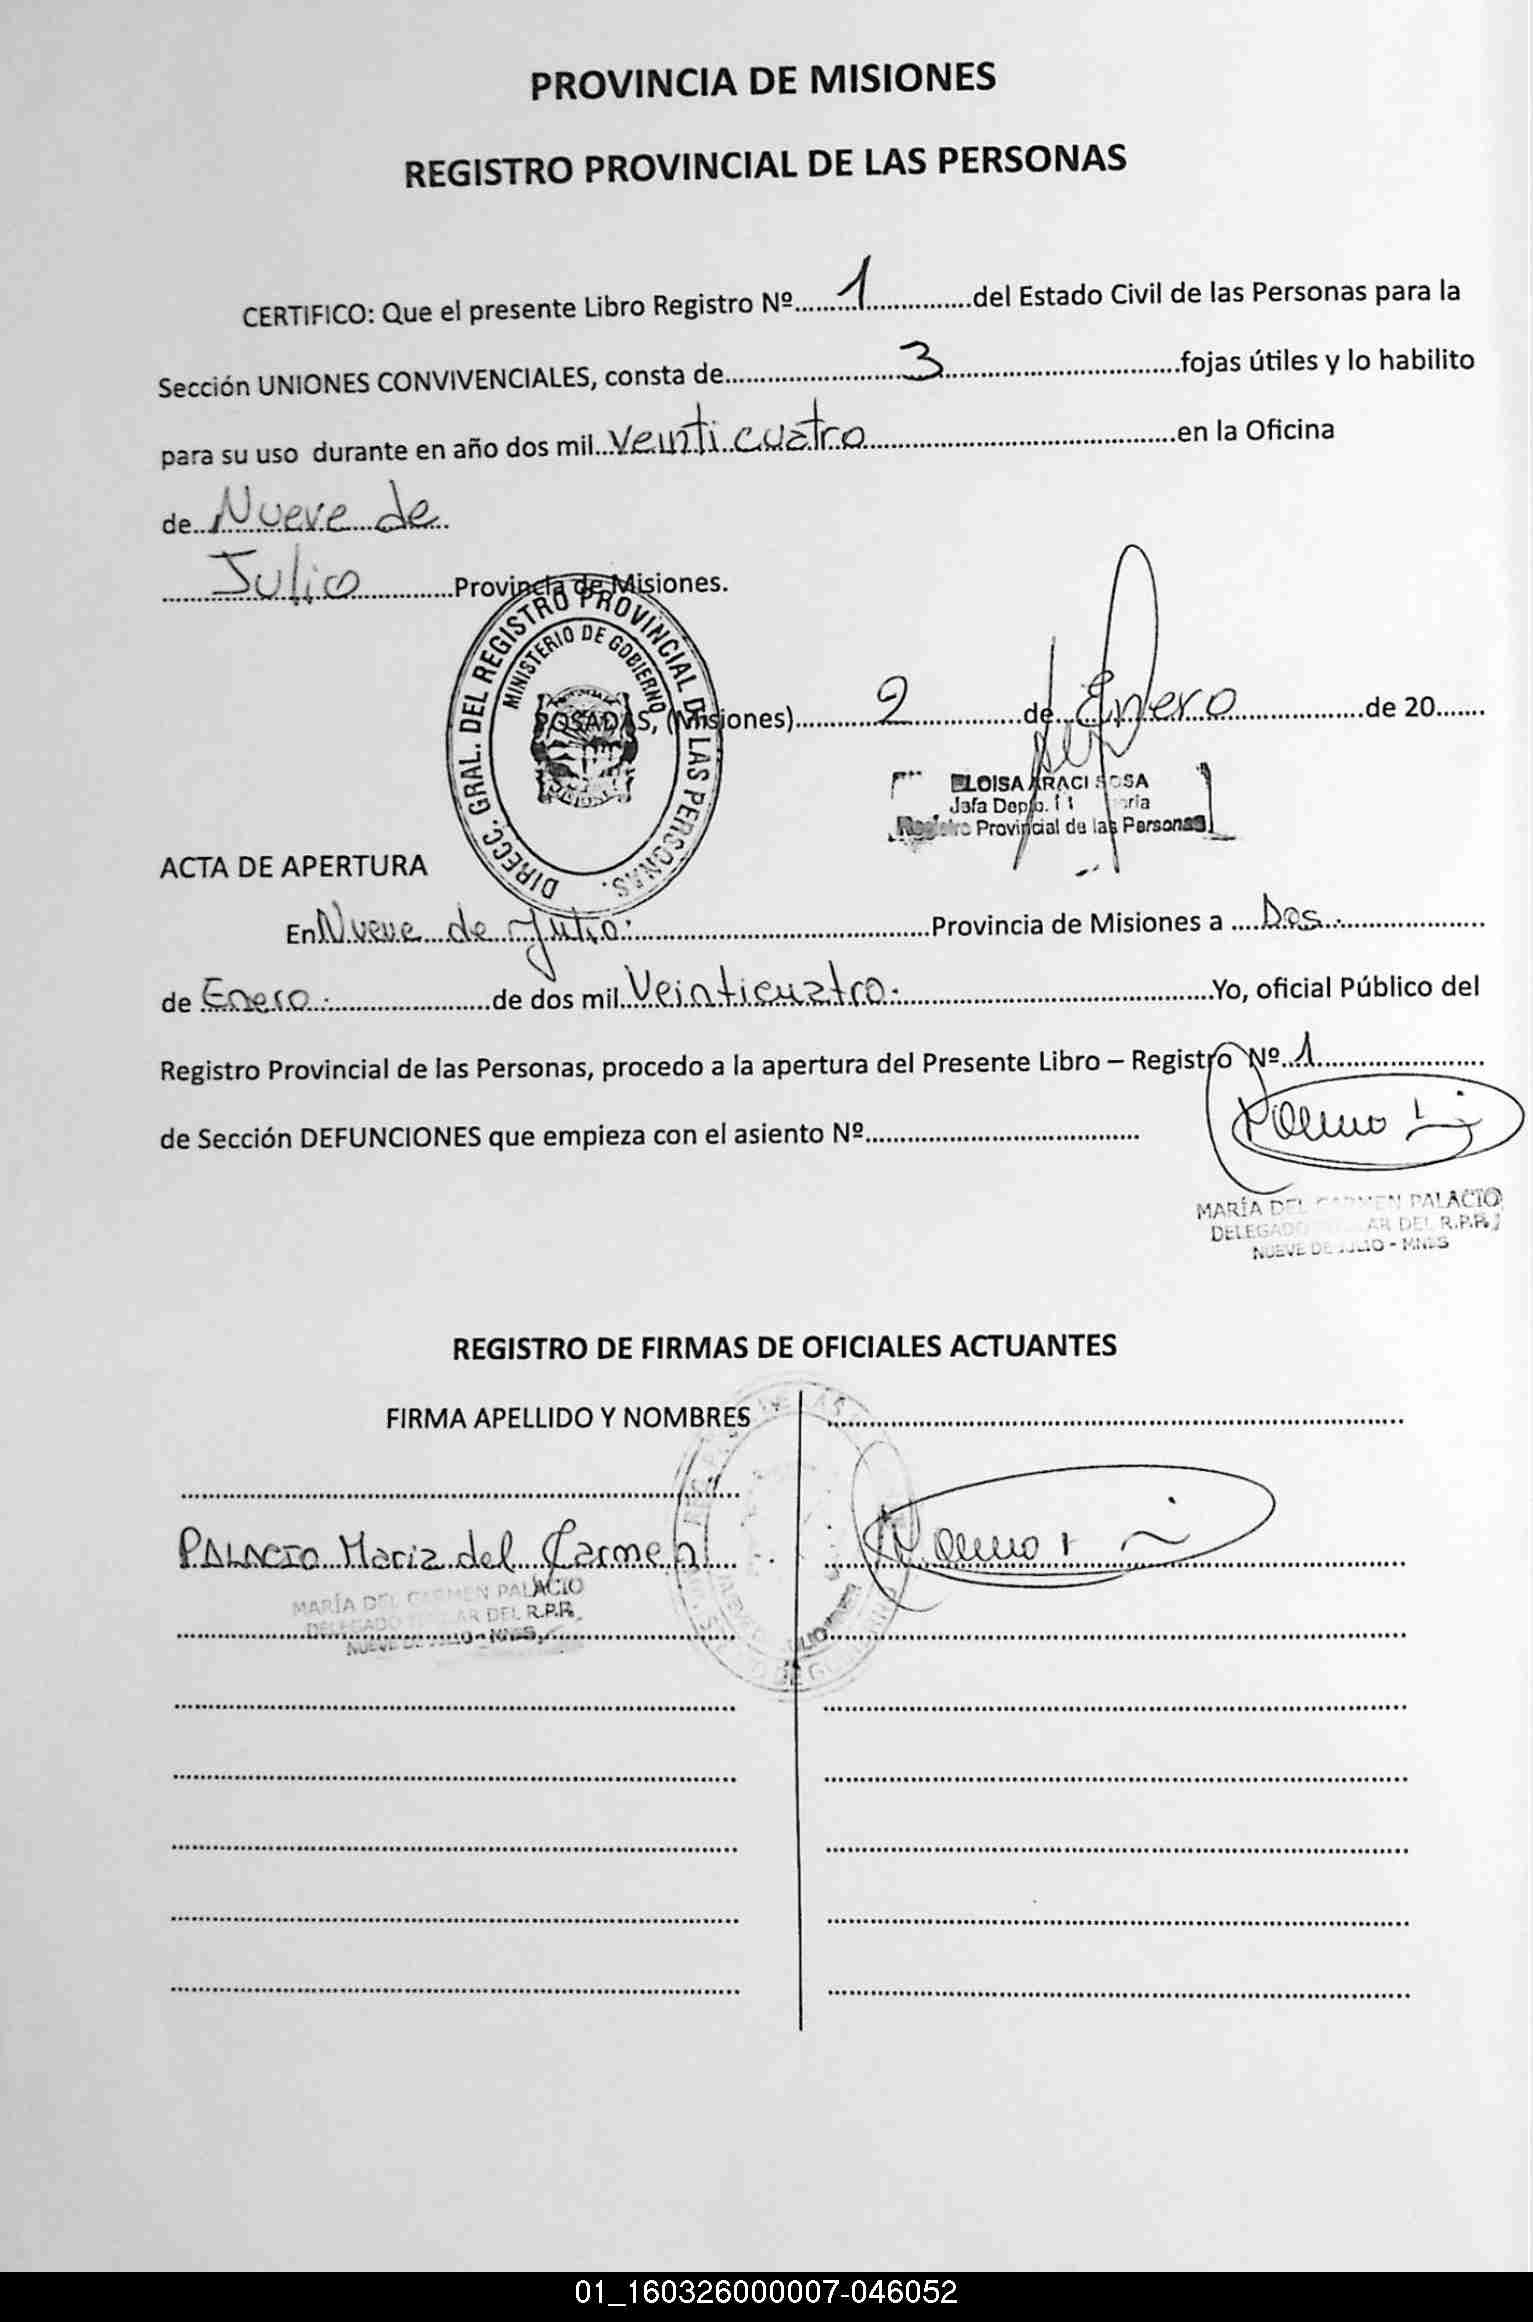 PROVINCIA DE MISIONES
REGISTRO PROVINCIAL DE LAS PERSONAS
CERTIFICO: Que el presente Libro Registro Nº.....1.....del Estado Civil de las Personas para la
Sección UNIONES CONVIVENCIALES, consta de.....3.....fojas útiles y lo habilito
para su uso durante en año dos mil...Veinticuatro.....en la Oficina
de...Nueve de...
.....Julio.....Provincia de Misiones.
DIRECC. GRAL. DEL REGISTRO PROVINCIAL DE LAS PERSONAS.
MINISTERIO DE GOBIERNO
POSADAS, (Misiones).....2.....de...Enero.....de 20.......
ELOISA ARACI SOSA
Jefa Depto.
Registro Provincial de las Personas
ACTA DE APERTURA
En Nueve de Julio.....Provincia de Misiones a ....Dos.....
de Enero.....de dos mil Veinticuatro.....Yo, oficial Público del
Registro Provincial de las Personas, procedo a la apertura del Presente Libro – Registro Nº...1.....
de Sección DEFUNCIONES que empieza con el asiento Nº..........
MARÍA DEL CARMEN PALACIO
DELEGADO TITULAR DEL R.P.P.
NUEVE DE JULIO - MNES
REGISTRO DE FIRMAS DE OFICIALES ACTUANTES
FIRMA APELLIDO Y NOMBRES
PALACIO Maria del Carmen
MARÍA DEL CARMEN PALACIO
DELEGADO TITULAR DEL R.P.P.
NUEVE DE JULIO - MNES
01_160326000007-046052